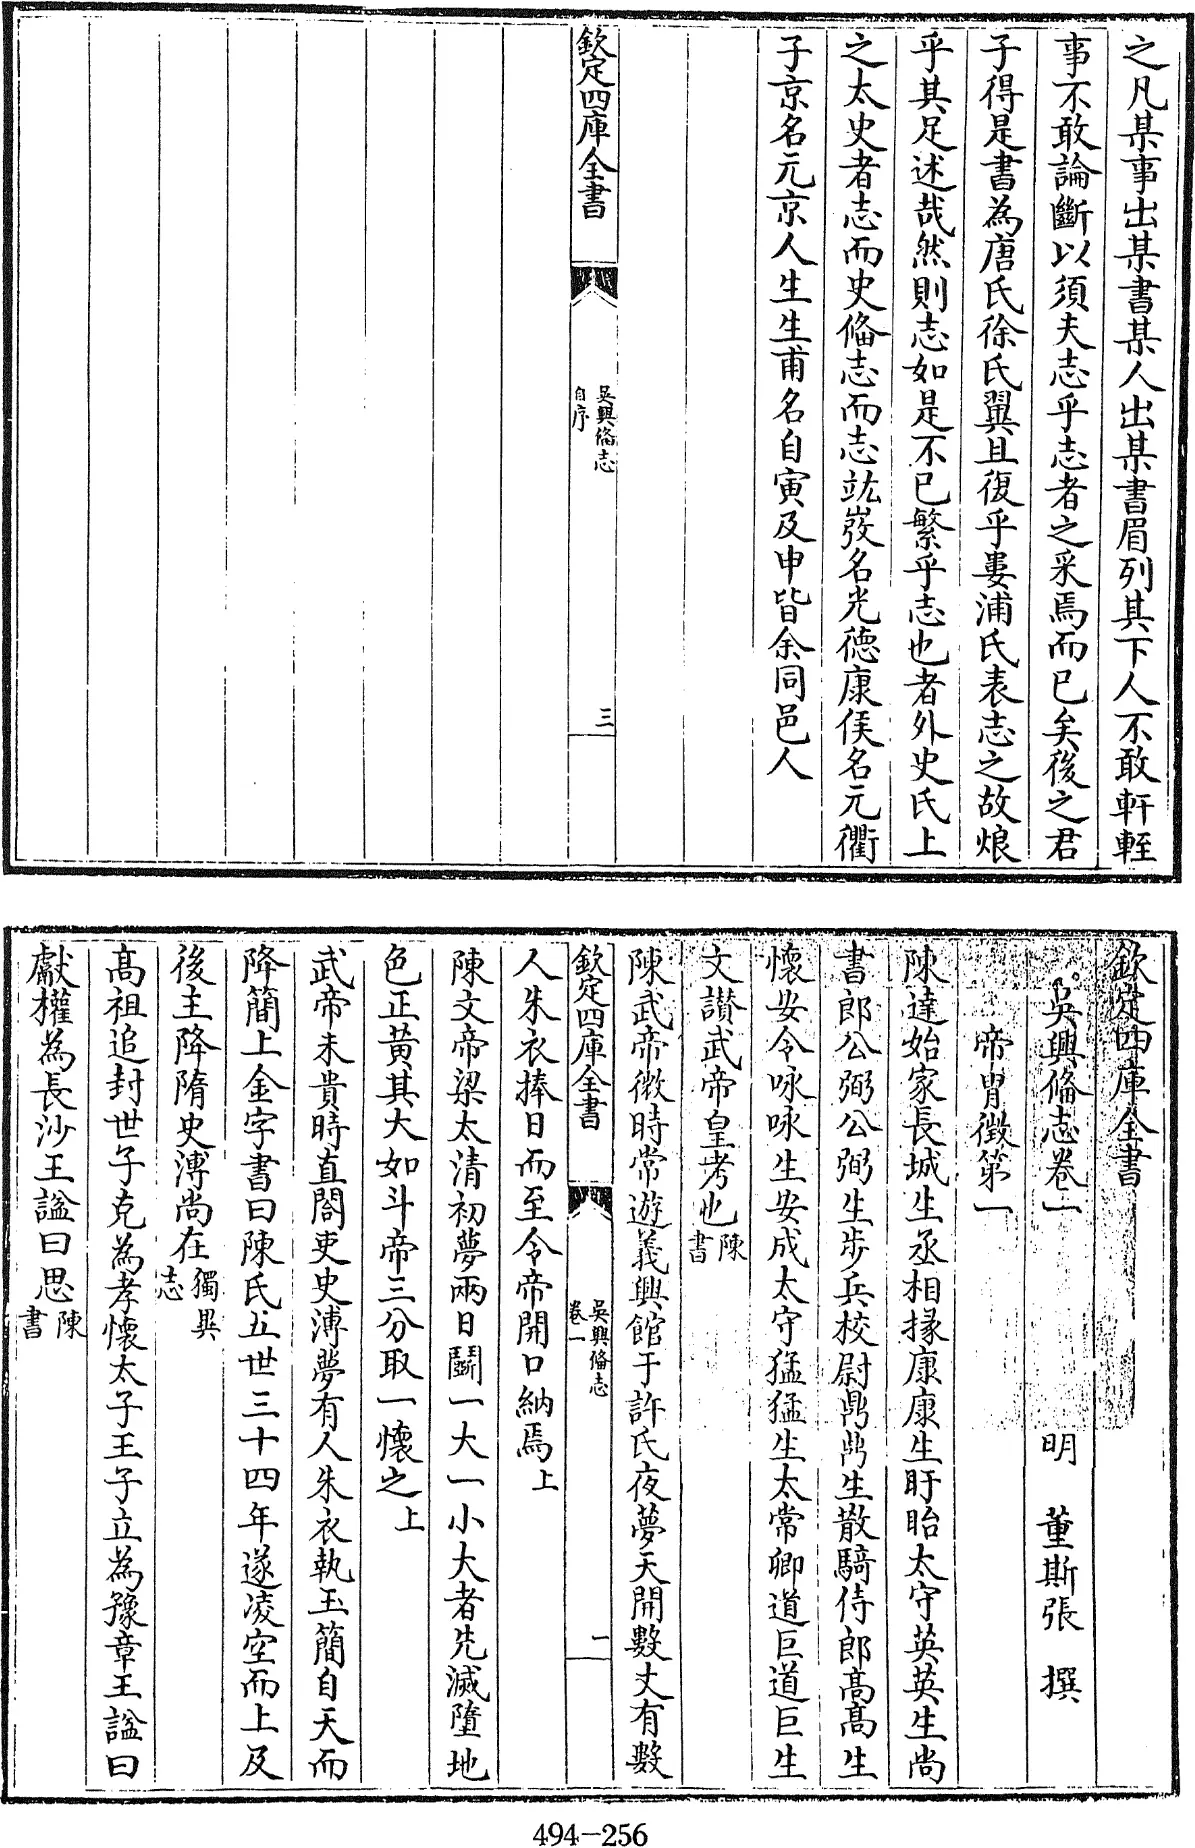 之凡某事出某書某人出某書眉列其下人不敢軒輊
事不敢論斷以須夫志乎志者之采焉而已矣後之君
子得是書為唐氏徐氏翼且復乎婁浦氏表志之故烺
乎其足述哉然則志如是不已繁乎志也者外史氏上
之太史者志而史偹志而志竑嵏名光德康侯名元衢
子京名元京人生生甫名自寅及申皆余同邑人
欽定四庫全書
吳興偹志
自序
三
欽定四庫全書
吳興偹志卷一
明 董斯張 撰
帝胄徵第一
陳達始家長城生丞相掾康康生盱眙太守英英生尚
書郎公弼公弼生步兵校尉鼎鼎生散騎侍郎高高生
懷安令咏咏生安成太守猛猛生太常卿道巨道巨生
文讃武帝皇考也陳書
陳武帝微時常遊義興館于許氏夜夢天開數丈有數
欽定四庫全書
吳興偹志
卷一
一
人朱衣捧日而至令帝開口納焉上
陳文帝梁太清初夢兩日鬬一大一小大者先滅墮地
色正黃其大如斗帝三分取一懷之上
武帝未貴時直閤吏史溥夢有人朱衣執玉簡自天而
降簡上金字書曰陳氏五世三十四年遂凌空而上及
後主降隋史溥尚在獨異志
高祖追封世子克為孝懷太子王子立為豫章王諡曰
獻權為長沙王諡曰思陳書
494-256